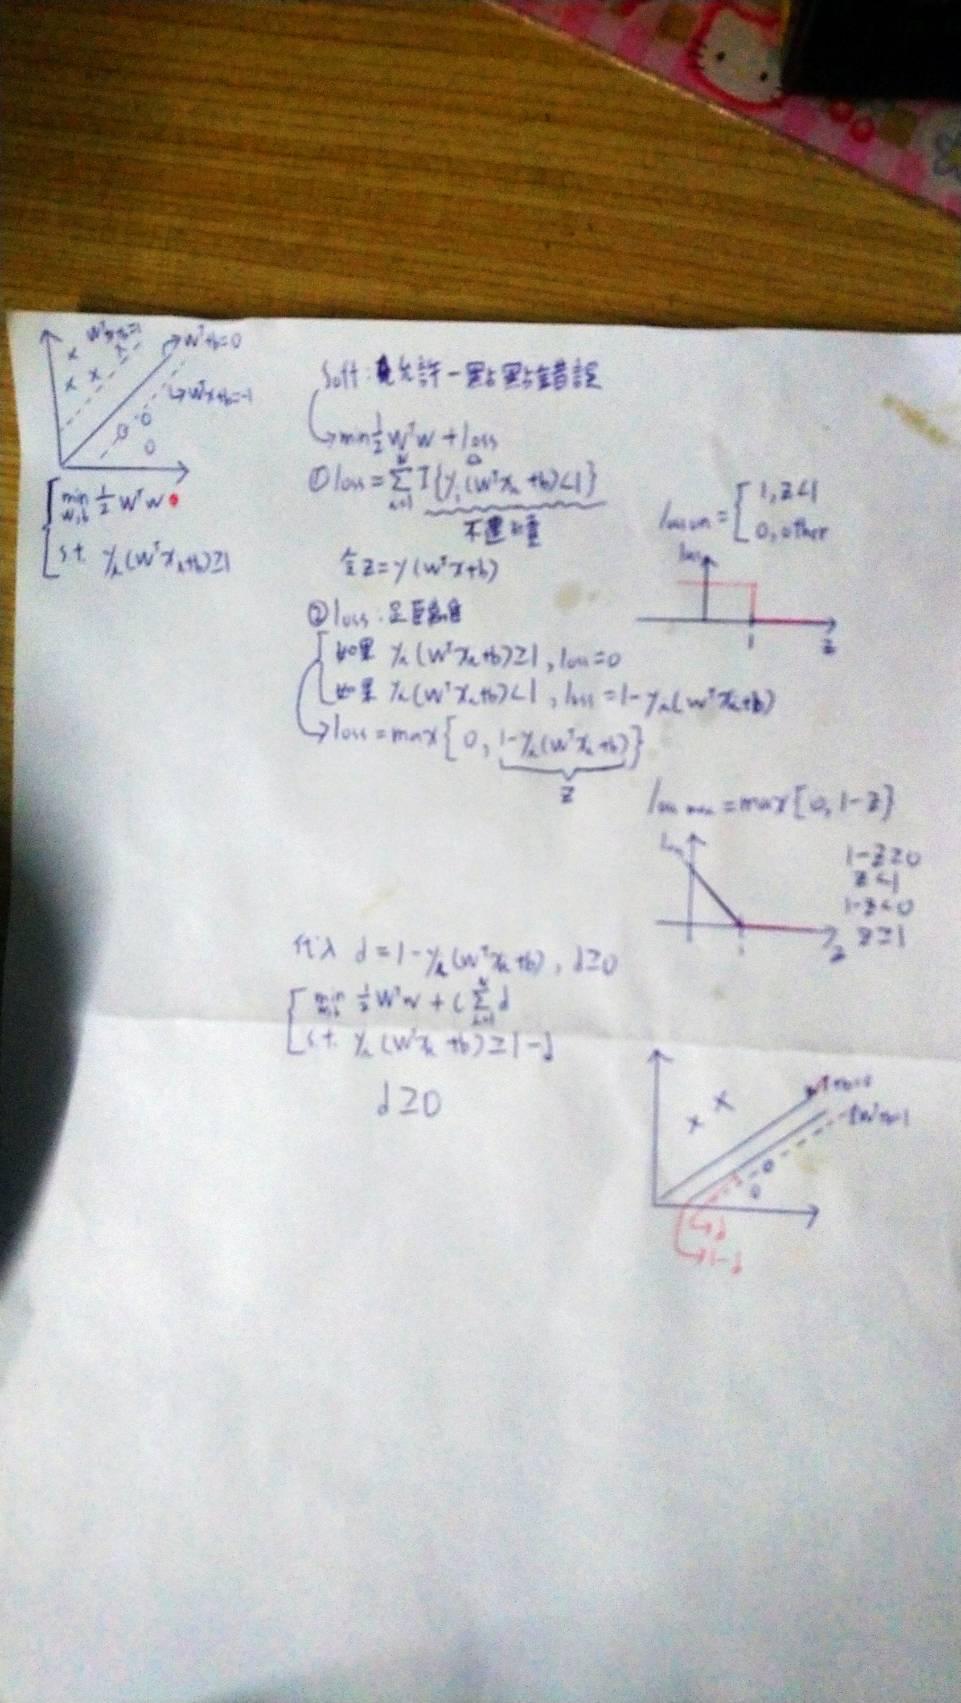 wᵀx+b=1
wᵀ+b=0
wᵀx+b=-1
min w,b ½ wᵀw
s.t. yᵢ(wᵀxᵢ+b)≥1
Soft: 允許一點點錯誤
→min ½ wᵀw + loss
① loss = Σ I{yᵢ(wᵀxᵢ+b)<1}
令 z=y(wᵀx+b)
loss = { 1, z<1
0, other
loss
1
z
② loss: 距離
如果 yᵢ(wᵀxᵢ+b)≥1, loss=0
如果 yᵢ(wᵀxᵢ+b)<1, loss=1-yᵢ(wᵀxᵢ+b)
→loss=max{0, 1-yᵢ(wᵀxᵢ+b)}
z
loss max = max{0, 1-z}
loss
1-z≥0
z<1
1-z<0
z≥1
1
z
代入 d=1-yᵢ(wᵀxᵢ+b), d≥0
min w,b ½ wᵀw + C Σ d
s.t. yᵢ(wᵀxᵢ+b)≥1-d
d≥0
→d
→1-d